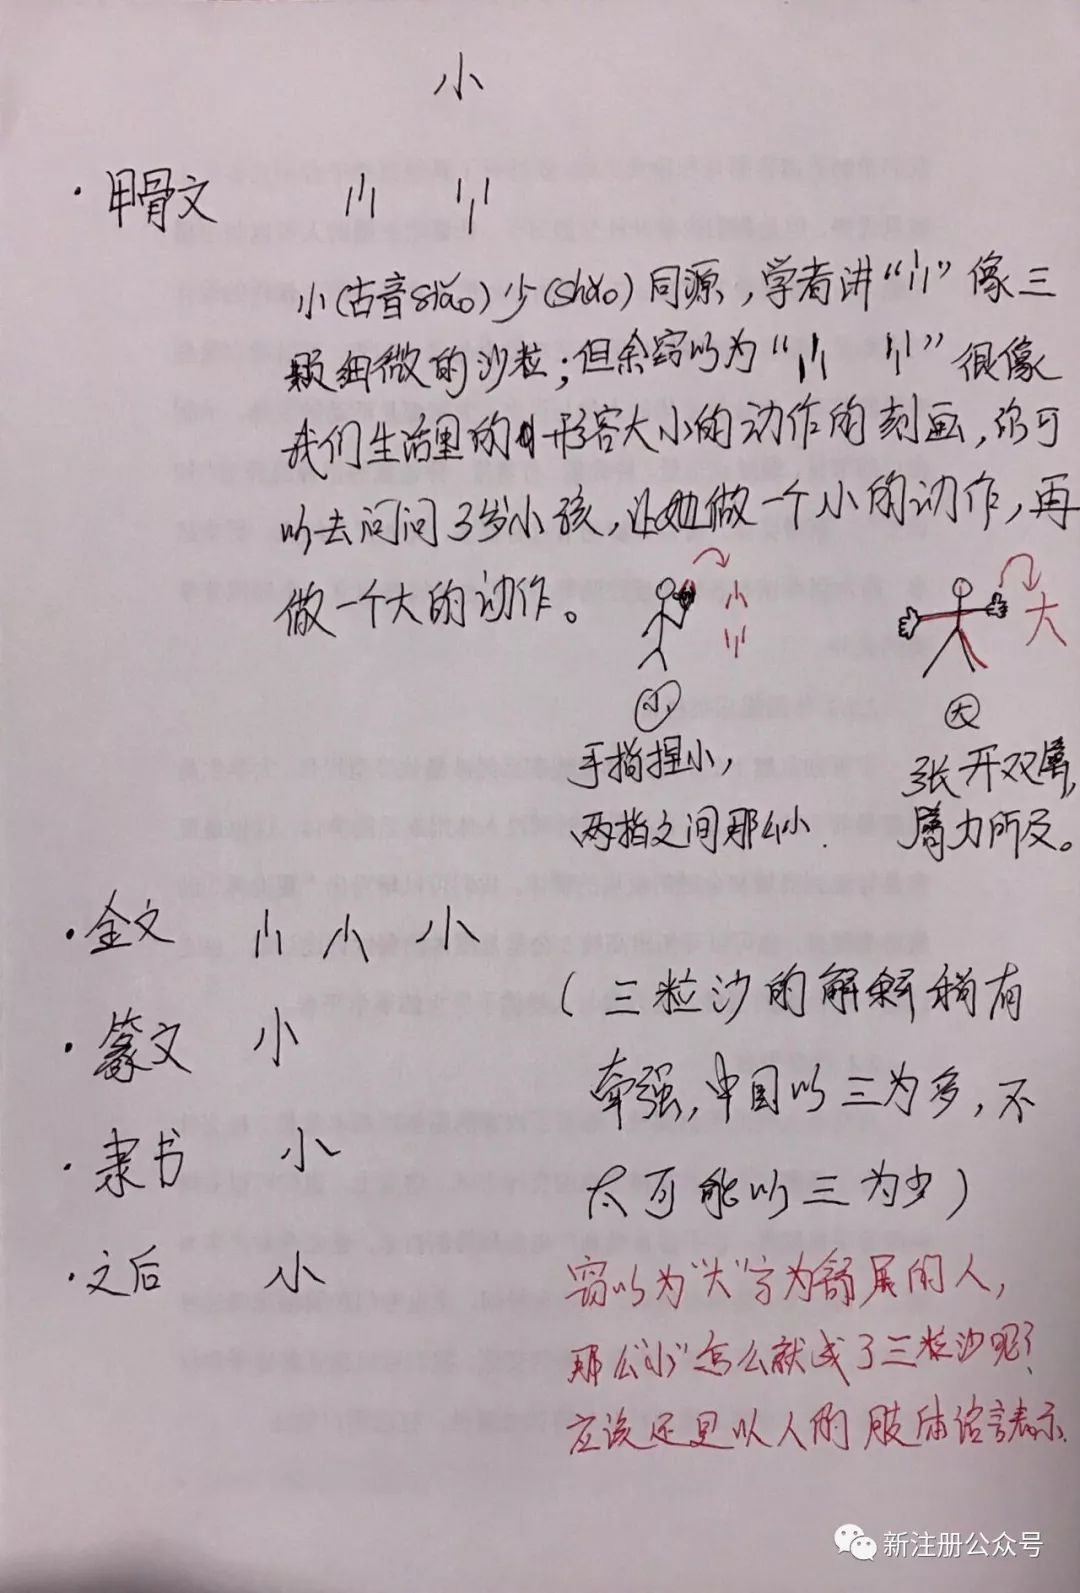 小
·甲骨文
小(古音siǎo)少(shǎo)同源,学者讲“小”像三
颗细微的沙粒;但余窃以为“ ”很像
我们生活里的形容大小的动作的刻画,你可
以去问问3岁小孩,让她做一个小的动作,再
做一个大的动作。
小
大
小
大
手指捏小,
两指之间那么小.
张开双臂,
臂力所及。
·金文 小 小
·篆文 小
·隶书 小
·之后 小
(三粒沙的解释稍有
牵强,中国以三为多,不
太可能以三为少)
窃以为“大”字为舒展的人,
那么“小”怎么就成了三粒沙呢?
应该还是以人的肢体语言表示.
新注册公众号